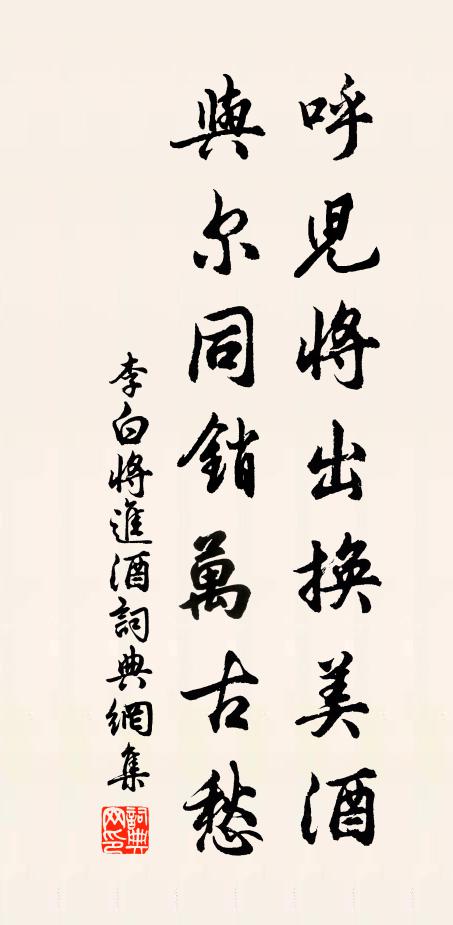 呼児将出換美酒
與尔同銷萬古愁
李白将進酒詞典網集
詞典網印